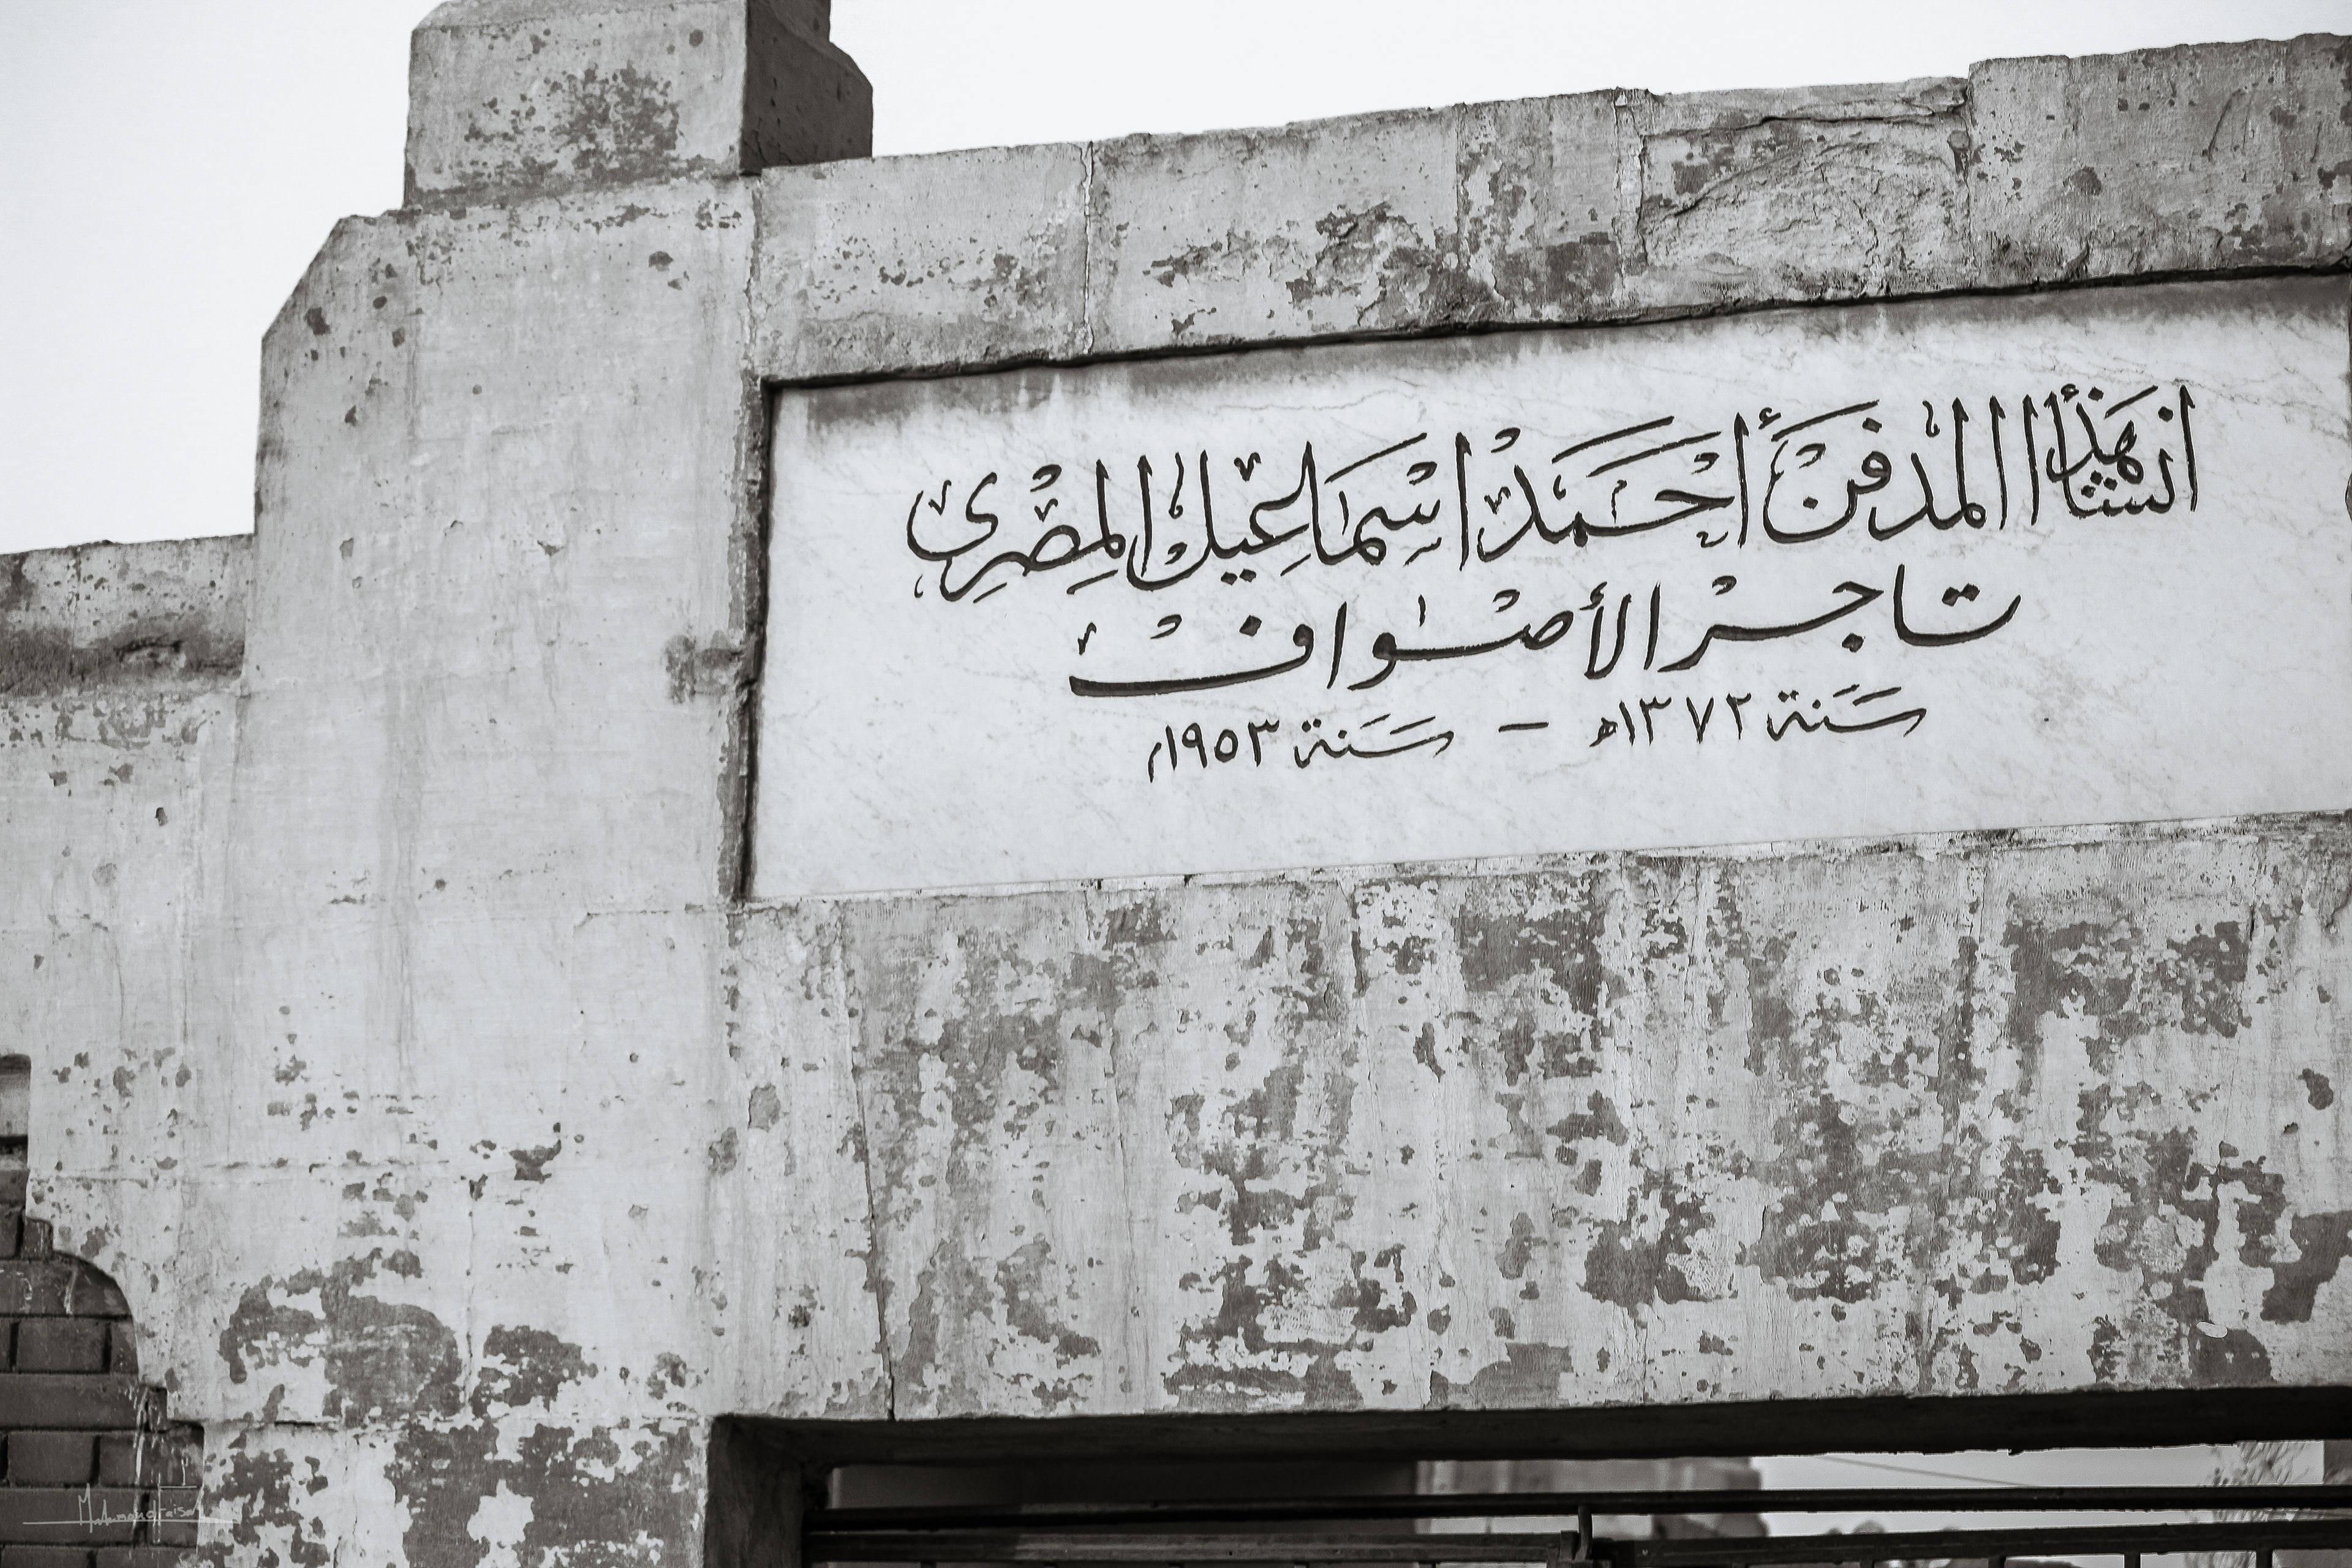 انشأ هذا المدفن أحمد اسماعيل المصرى
تاجر الأصواف
سنة ١٣٧٢ھ - سنة ١٩٥٣م